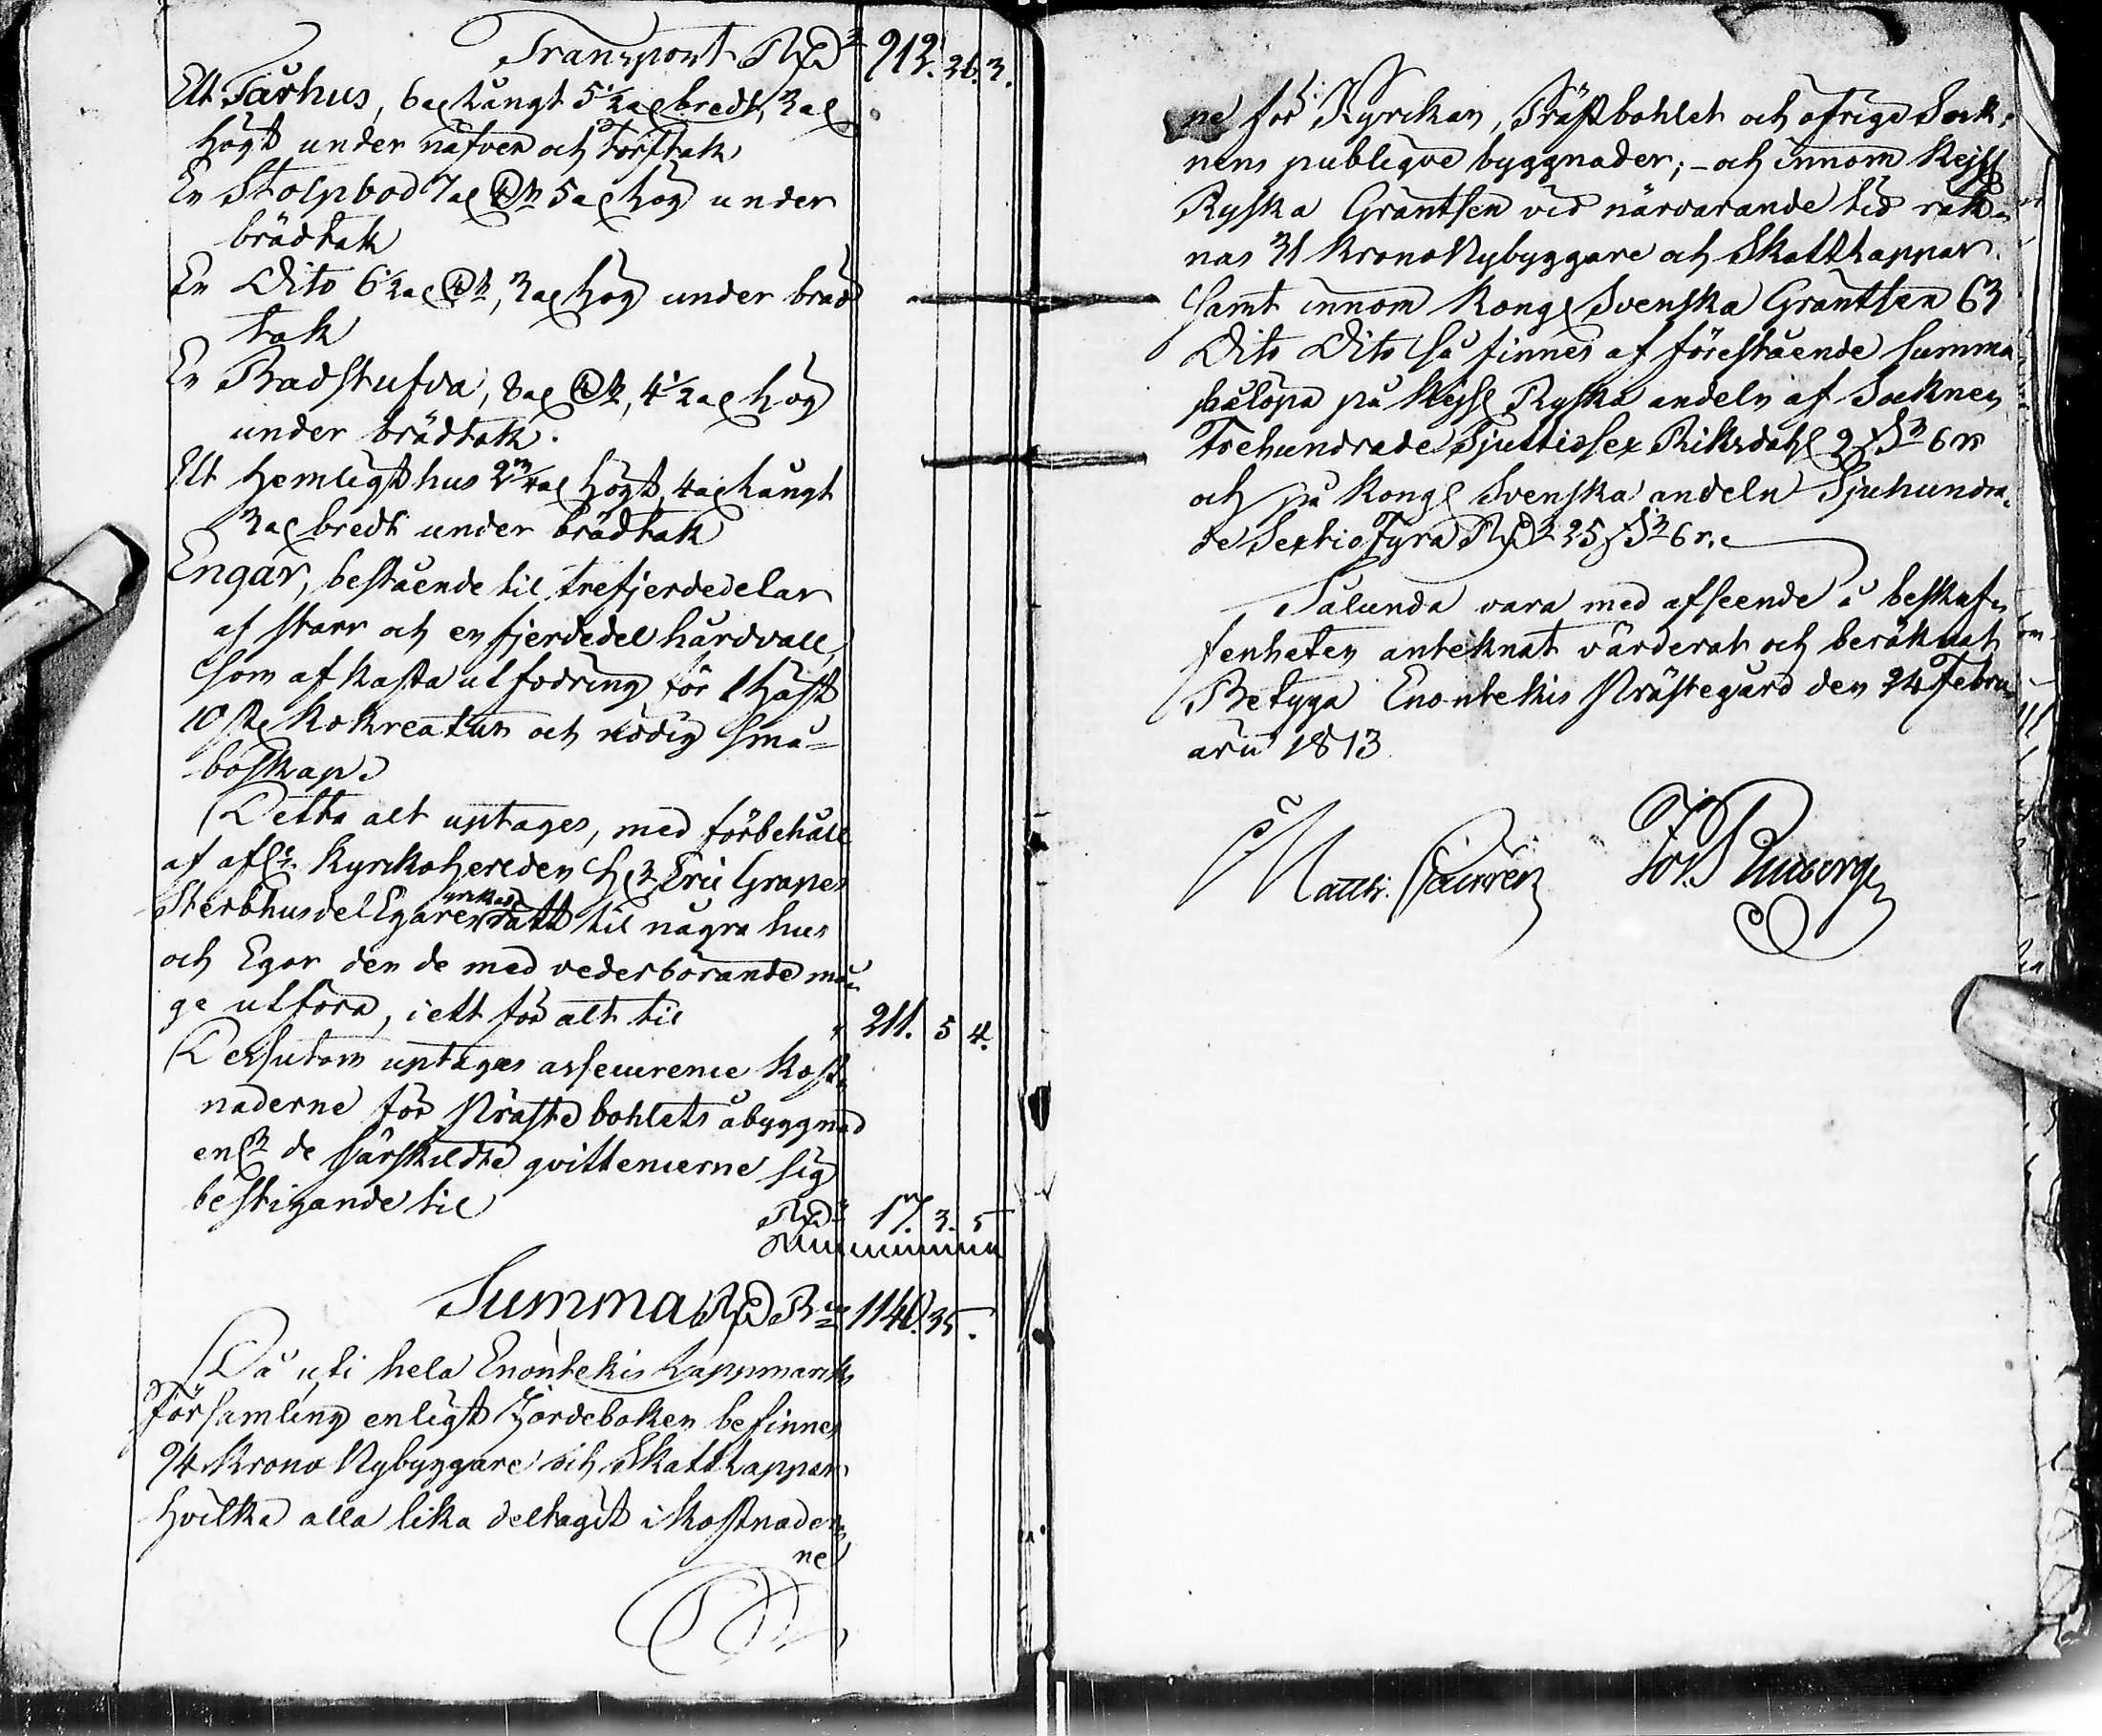 Transport RD:r 912. 26. 3.
Ett Fårhus, 6 al långt 5 1/2 al bredt, 3 al
högt under näfver och torftak
En Stolpbod 7 al 5 al hög under
brädtak
En Dito 6 1/2 al, 3 al hög under bräd
tak
En Badstufva, 8 al, 4 1/2 al hög
under brädtak.
Ett Hemligt hus 2 3/4 al högt, 4 al långt
3 al bredt under brädtak
Engar, bestående til trefjerdedelar
af starr och en fjerdedel hårdvall,
som afkasta utfodring för 1 häst
10 st Kokreatur och nödig små=
boskap.
Detta alt uptages, med förbehåll
af afl. Kyrkoherden H:r Eric Grapes
Sterbhusdel Egares yrkade rätt til några hus
och Egor den de med vederbörande må
ge utföra, i ett för alt til " 211. 5 4.
Dessutom uptages assecurence kost
naderne för Prästebohlets åbyggnad
enl:t de särskildte qvittencierne sig
bestigande til
RD:r 17. 3. 5
Summa RD:r B:co 1140. 35.
Då uti hela Enontekis Lappmarks
Församling enligt Jordeboken befinnes
94 Krono Nybyggare och Skatt Lappar
hvilka alla lika deltagit i kostnader
ne
ne för Kyrckan, Prästbohlet och öfrige Sock,
nens publique byggnader; - och innom Kejs
Ryska Gräntsen vid närvarande tid räk=
nas 31 Krono Nybyggare och Skatt Lappar.
samt innom Kongl Svenska Gräntsen 63
Dito Dito så finnes af förestående summa
belöpa på Kejsl Ryska andeln af Socknen
Trehundrade Sjuttiosex Riksdahl 9 s 6 r
och på Kongl Svenska andeln Sjuhundra
de Sextio Fyra RD:r 25 s 6 r.
Sålunda vara med afseende å beskaf
fenheten anteknat värderat och beräknat
Betyga Enontekis Prästegård den 24 Febru
arii 1813
Matth. Joh.